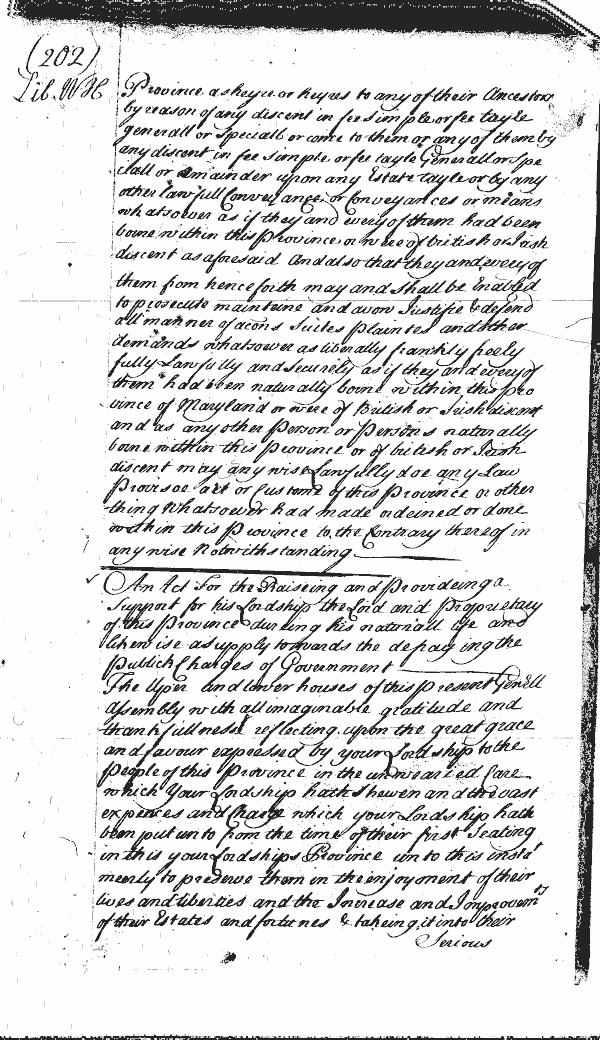 (202)
Lib. WH
Province as heyre or heyres to any of their Ancestors
by reason of any discent in fee simple or fee tayle
generall or speciall or come to them or any of them by
any discent in fee simple or fee tayle Generall or Spe
ciall or remainder upon any Estate tayle or by any
other lawfull Conveyance or Conveyances or means
whatsoever as if they and every of them had been
borne within this Province or were of british or Irish
discent as aforesaid And also that they and every of
them from henceforth may and shall be Enabled
to prosecute mainteine and avow Justifie & defend
all manner of acons Suites plaintes and other
demands whatsoever as liberally frankly freely
fully Lawfully and Securely as if they and every of
them had been naturally borne within this Pro
vince of Maryland or were of British or Irish discent
and as any other Person or Persons naturally
borne within this Province or of british or Irish
discent may any wise Lawfully doe any Law
Provisoe act or Custome of this Province or other
thing Whatsoever had made ordeined or done
within this Province to the Contrary thereof in
any wise Notwithstanding
An Act For the Raiseing and Provideing a
Support for his Lordship the Lord and Proprietary
of this Province dureing his naturall life and
likewise a supply towards the defraying the
Publick Charges of Government
The Uper and lower houses of this present Genll
Assembly with all imaginable gratitude and
thankfullness reflecting upon the great grace
and favour expressed by your Lordship to the
People of this Province in the unwearied Care
which Your Lordship hath Shewen and the vast
expences and Charge which your Lordship hath
been put unto from the time of their first Seating
in this your Lordships Province unto this insta't
meerly to preserve them in the enjoyment of their
lives and liberties and the Increase and Improvemts
of their Estates and fortunes & takeing it into their
Serious